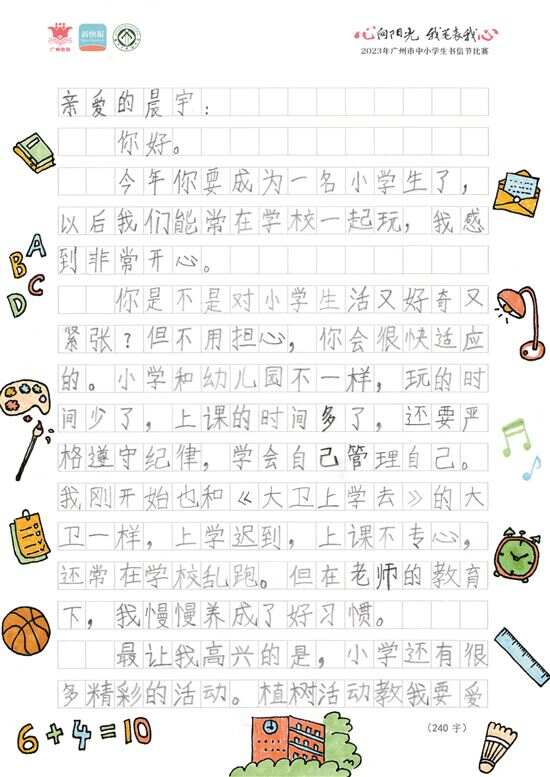 广州教育
新快报
心向阳光 我笔表我心
2023年广州市中小学生书信节比赛
亲爱的晨宇：
你好。
今年你要成为一名小学生了，
以后我们能常在学校一起玩，我感
到非常开心。
你是不是对小学生活又好奇又
紧张？但不用担心，你会很快适应
的。小学和幼儿园不一样，玩的时
间少了，上课的时间多了，还要严
格遵守纪律，学会自己管理自己。
我刚开始也和《大卫上学去》的大
卫一样，上学迟到，上课不专心，
还常在学校乱跑。但在老师的教育
下，我慢慢养成了好习惯。
最让我高兴的是，小学还有很
多精彩的活动。植树活动教我要爱
（240 字）
A
B
C
D
6+4=10